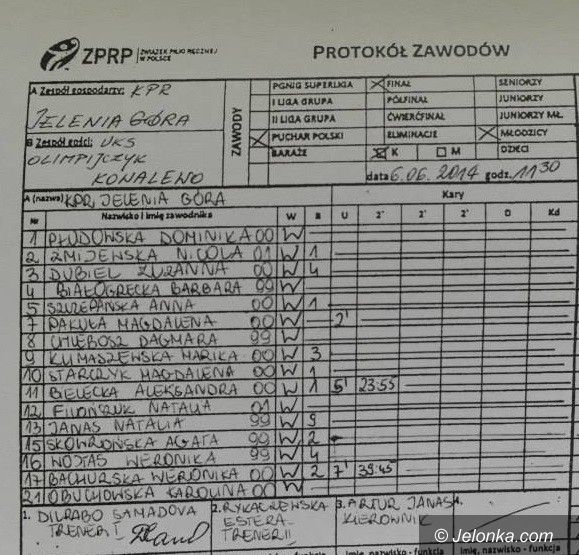 ZPRP ZWIĄZEK PIŁKI RĘCZNEJ W POLSCE
PROTOKÓŁ ZAWODÓW
A Zespół gospodarzy: KPR
JELENIA GÓRA
B Zespół gości: UKS
OLIMPIJCZYK
KOWALEWO
ZAWODY
PGNIG SUPERLIGA FINAŁ SENIORZY
I LIGA GRUPA PÓŁFINAŁ JUNIORZY
II LIGA GRUPA ĆWIERĆFINAŁ JUNIORZY MŁ.
PUCHAR POLSKI ELIMINACJE MŁODZICY
BARAŻE K M DZIECI
data 6.06.2014 godz. 11 30
A (nazwa) KPR JELENIA GÓRA Kary
Nr Nazwisko i imię zawodnika W B U 2' 2' 2' D Kd
1 PŁUDOWSKA DOMINIKA 00 W
2 ŻMIJEWSKA NICOLA 01 W 1
3 DUBIEL ZUZANNA 00 W 4
4 BIAŁOGRECKA BARBARA 99 W
5 SZCZEPAŃSKA ANNA 00 W 1
7 PAKUŁA MAGDALENA 00 W 2'
8 CHLEBOSZ DAGMARA 99 W
9 KLIMASZEWSKA MARIKA 00 W 3
10 STARCZYK MAGDALENA 00 W 1
11 BIELECKA ALEKSANDRA 00 W 1 5' 23:55
12 NATALIA 01 W
13 JANAS NATALIA 99 W 9
15 SKOWROŃSKA AGATA 99 W 2
16 WOJTAS WERONIKA 99 W 4
17 BACHURSKA WERONIKA 00 W 2 7' 39:45
21 OBUCHOWSKA KAROLINA 00 W
1. DILRABO SAMADOVA 2. RYKACZEWSKA 3. ARTUR JANAS 4.
TRENER I ESTERA- KIEROWNIK
TRENER II
imię, nazwisko - funkcja imię, nazwisko - funkcja
© Jelonka.com